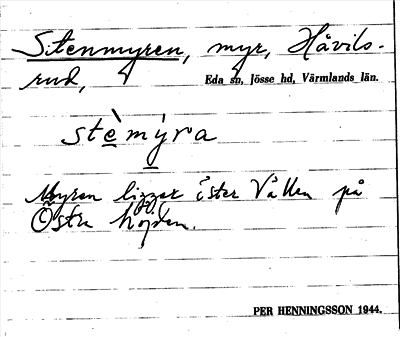 Stenmyren, myr, Håvils-
rud, Eda sn, Jösse hd, Värmlands län.
stè̠mý̠ra
Myren ligger öster Vållen på
Östra höjden.
PER HENNINGSSON 1944.